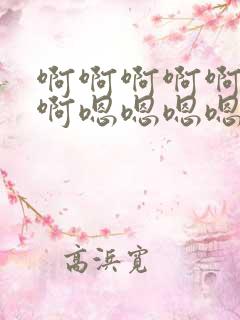 啊啊啊啊啊
啊嗯嗯嗯嗯
高浜寛